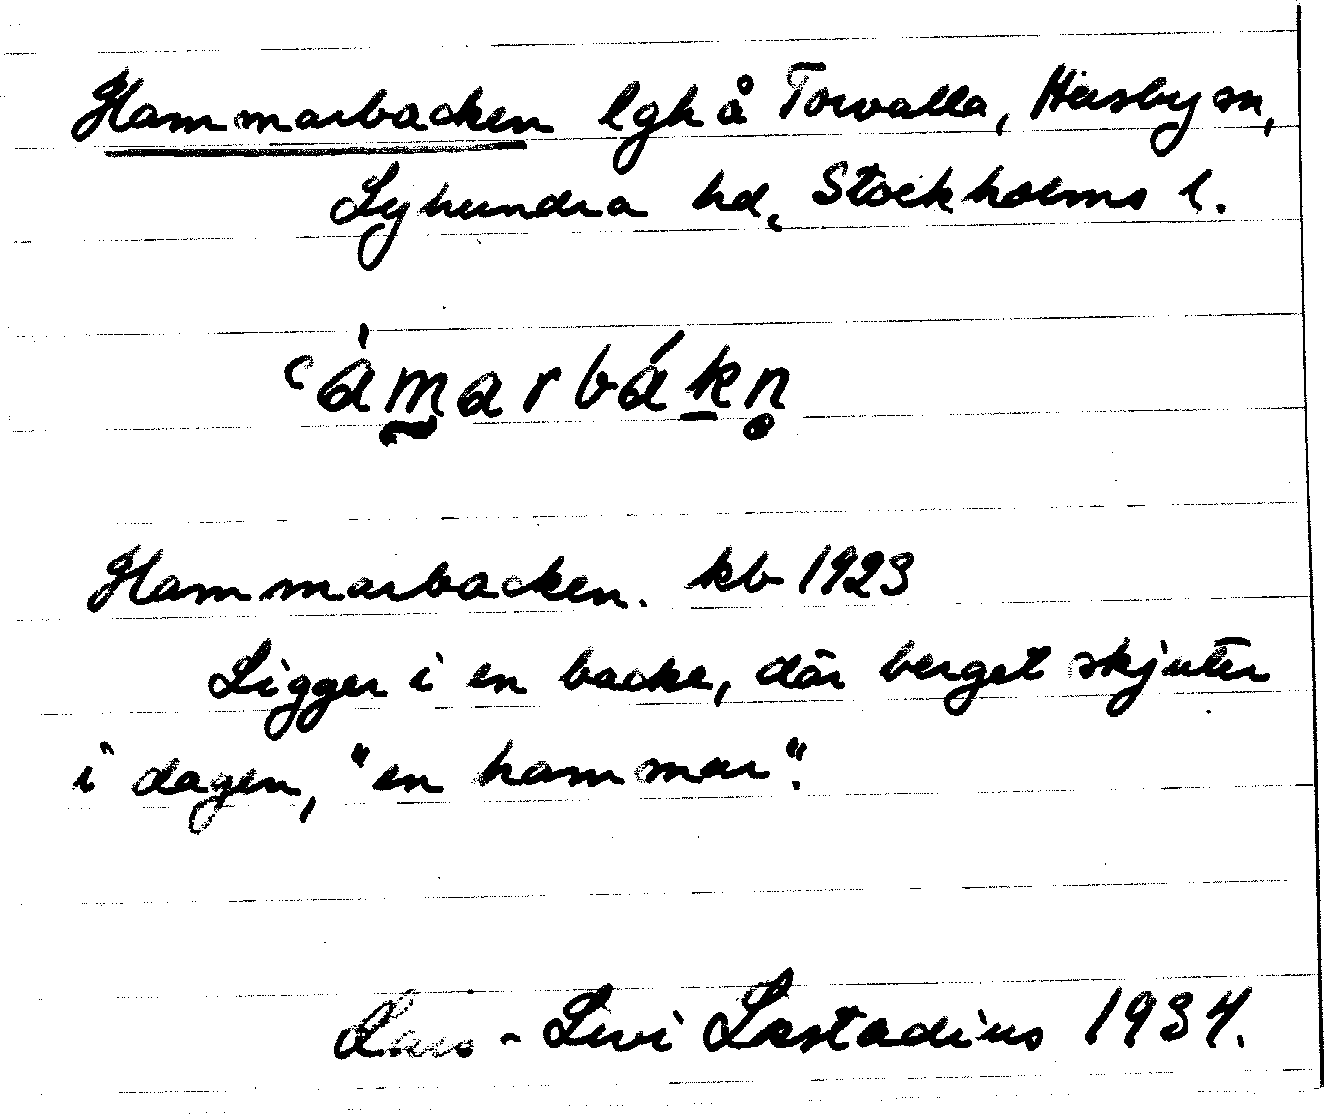 Hammarbacken lgh å Torvalla, Husby sn,
Lyhundra hd, Stockholms l.
‘àmarbákn̥
Hammarbacken. kb 1923
Ligger i en backe, där berget skjuter
i dagen, "en hammar".
Lars-Levi Læstadius 1934.